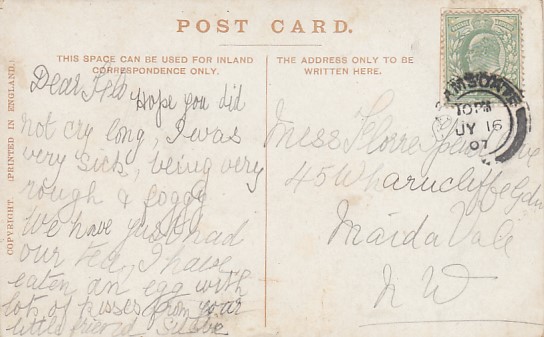 POST CARD.
THIS SPACE CAN BE USED FOR INLAND
CORRESPONDENCE ONLY.
THE ADDRESS ONLY TO BE
WRITTEN HERE.
COPYRIGHT (PRINTED IN ENGLAND.)
Dear
Hope you did
not cry long, I was
very sick, being very
rough & foggy
We have just had
our tea, I have
eaten an egg with
lots of kisses from your
little friend
10 PM
JY 16
07
Miss Florre
45 Wharncliffe Gdns
Maida Vale
N W